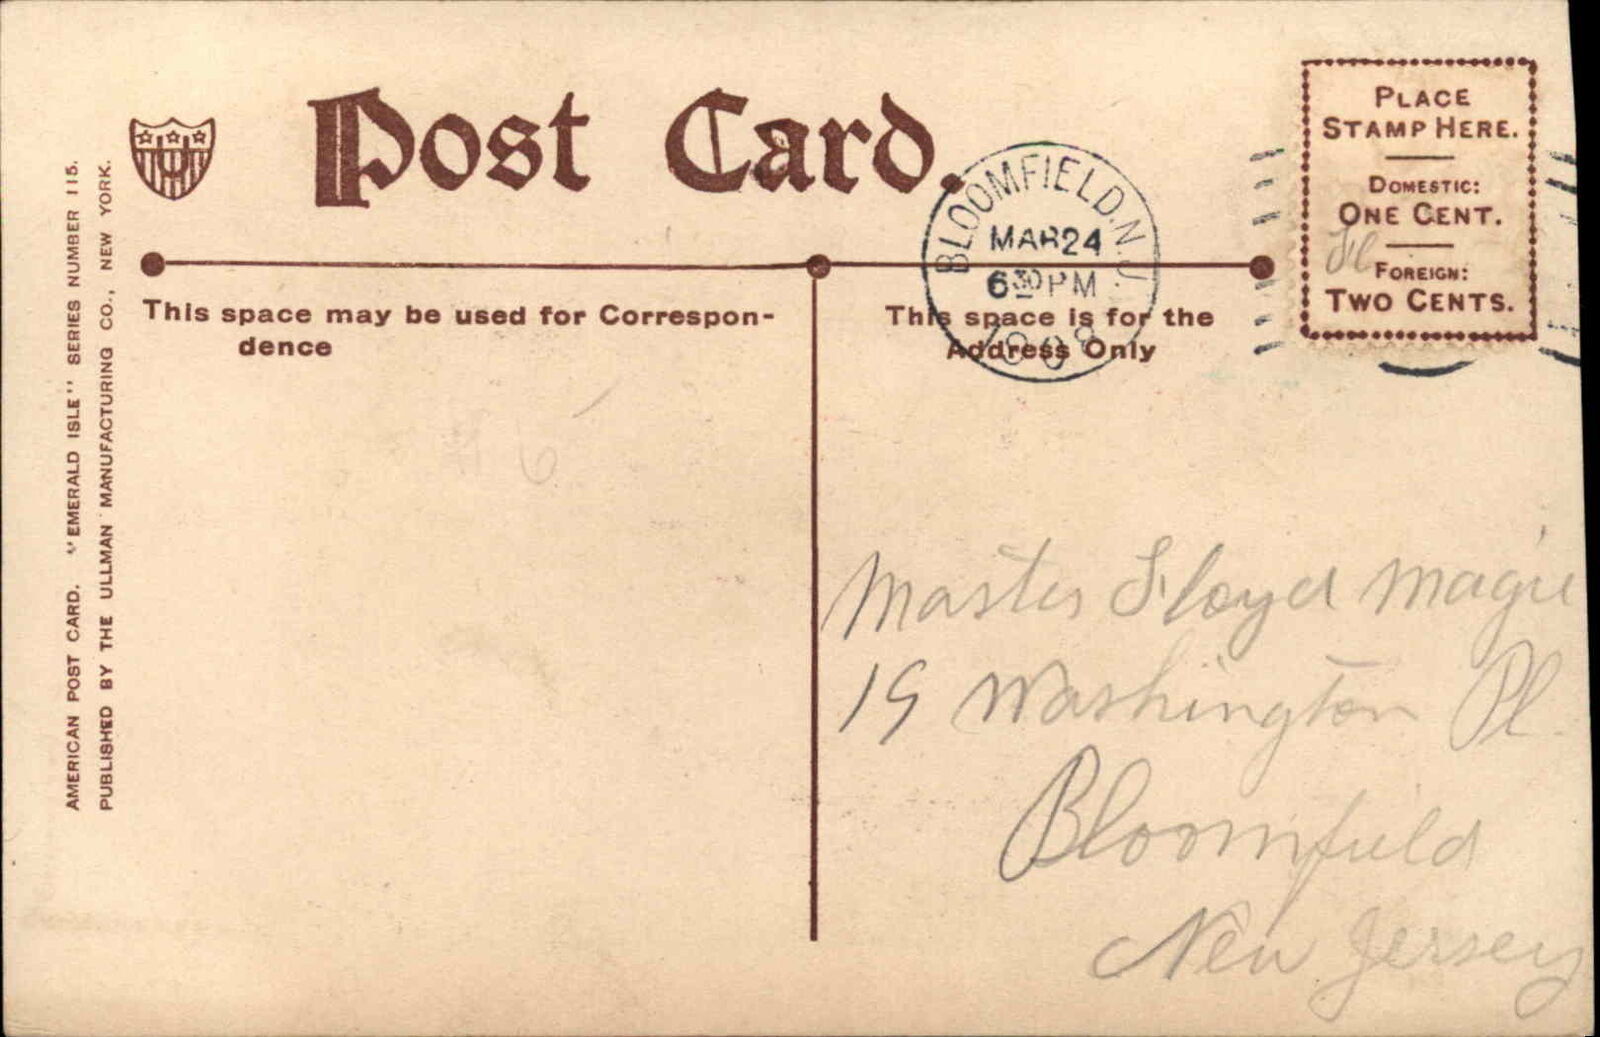 AMERICAN POST CARD. "EMERALD ISLE" SERIES NUMBER 115.
PUBLISHED BY THE ULLMAN MANUFACTURING CO., NEW YORK.
Post Card.
PLACE
STAMP HERE.
DOMESTIC:
ONE CENT.
FOREIGN:
TWO CENTS.
BLOOMFIELD, N.J.
MAR 24
6 30 PM
1908
This space may be used for Correspon-
dence
This space is for the
Address Only
6
Master Floyd Magie
19 Washington Pl.
Bloomfield
New Jersey